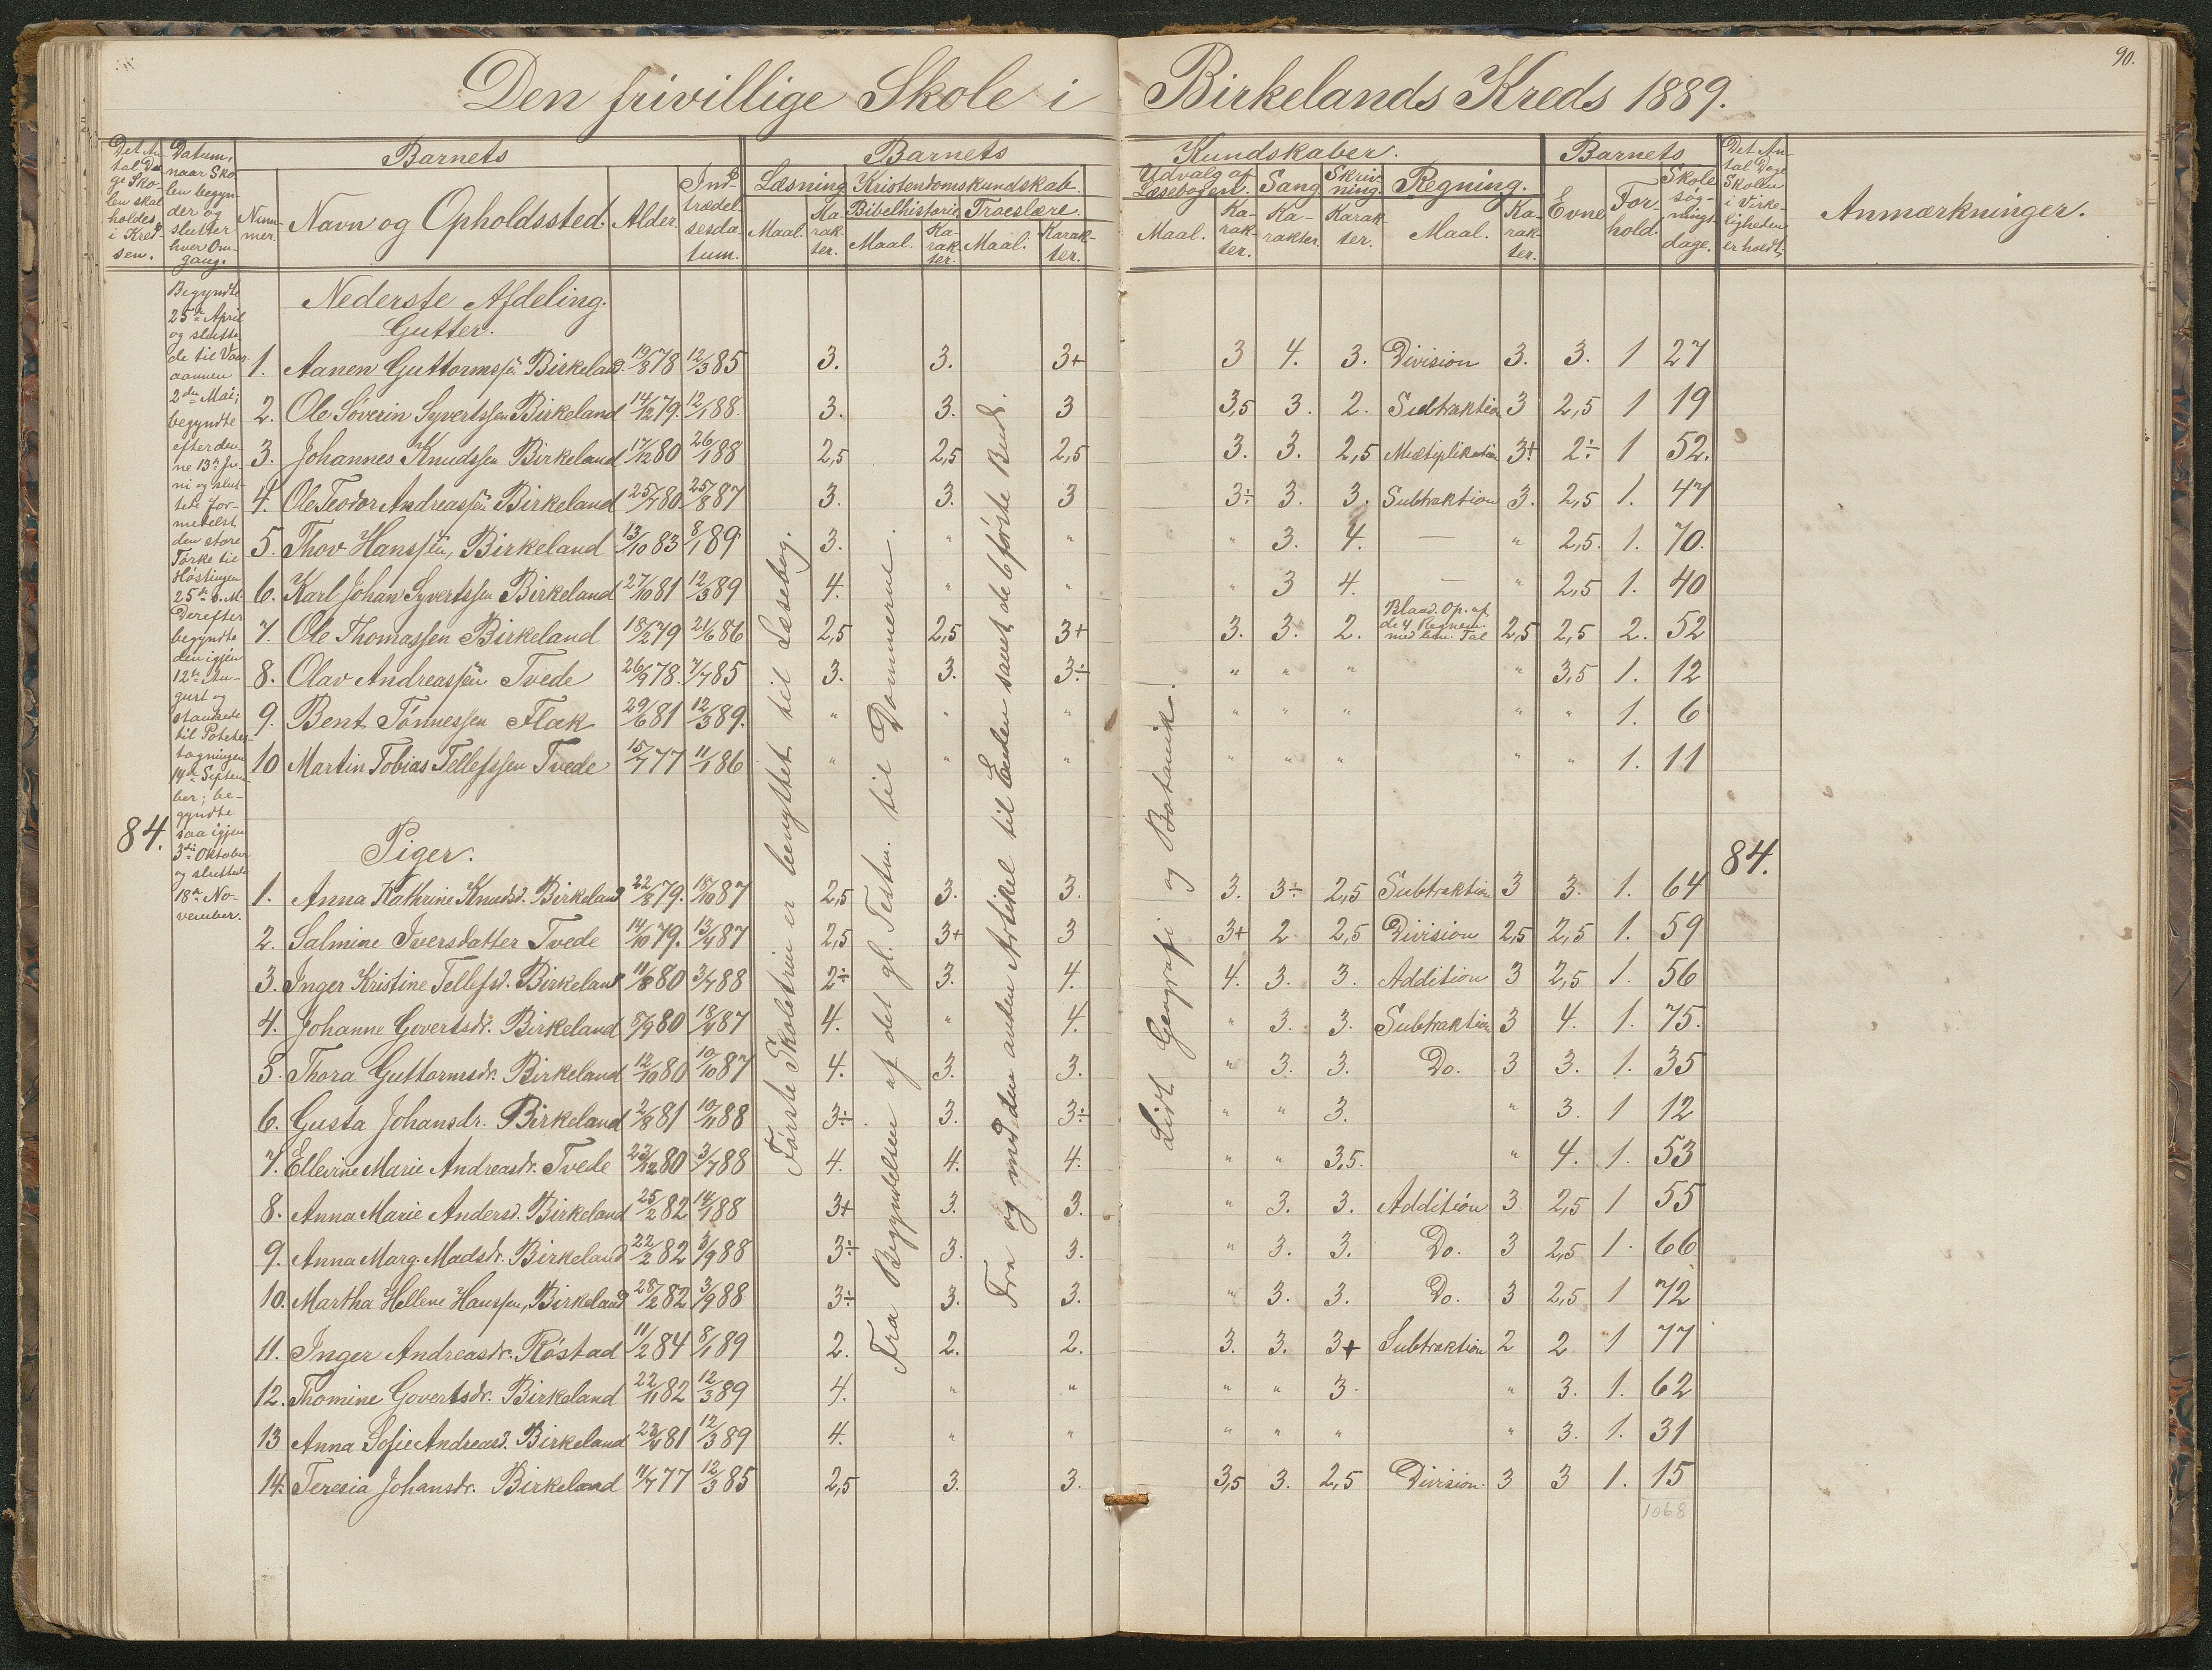 90.
Den frivillige Skole i Birkelands Kreds 1889.
Det An-
tal Da-
ge Sko-
len skal
holdes
i Kred-
sen.
Datum,
naar Sko-
len begyn-
der og
slutter
hver Om-
gang.
Barnets
Num-
mer.
Navn og Opholdssted.
Alder.
Ind-
trædel-
sesda-
tum.
Barnets Kundskaber.
Læsning.
Maal.
Ka-
rak-
ter.
Kristendomskundskab.
Bibelhistorie.
Maal.
Ka-
rak-
ter.
Troeslære.
Maal.
Karak-
ter.
Udvalg af
Læsebogen.
Maal.
Ka-
rak-
ter.
Sang.
Ka-
rakter.
Skriv-
ning.
Karak-
ter.
Regning.
Maal.
Ka-
rak-
ter.
Barnets
Evne
For-
hold.
Skole-
søg-
nings-
dage.
Det An-
tal Dage
Skolen
i Virke-
ligheden
er holdt.
Anmærkninger.
84.
Begyndte
25de April
og slutte-
de til Vaar-
aannen
2den Mai;
begyndte
efter den-
ne 13de Ju-
ni og slut-
tede for-
medelst
den store
Tørke til
Høstingen
25de s. M.
Derefter
begyndte
den igjen
12te Au-
gust og
standsede
til Potetes-
tagningen
14de Septem-
ber; be-
gyndte
saa igjen
3die Oktober
og sluttede
18de No-
vember.
Første Skoletrin er benyttet til Læsebog.
Fra Begyndelsen af det gl. Testm. til Dommerne.
Fra og med den anden Artikel til Enden samt de 6 første Bud.
Lidt Geografi og Botanik.
Nederste Afdeling.
Gutter.
1. Aanen Guttormssen Birkeland. 19/8 78 12/3 85 3. 3. 3+ 3 4. 3. Division 3. 3. 1 27
2. Ole Søverin Syvertssen Birkeland 14/12 79. 12/1 88. 3. 3. 3 3,5 3. 2. Subtraktion 3 2,5 1 19
3. Johannes Knudssen Birkeland 17/12 80 26/1 88 2,5 2,5 2,5 3. 3. 2,5 Multiplikation 3+ 2÷ 1 52.
4. Ole Teodor Andreassen Birkeland 25/7 80 25/8 87 3. 3. 3 3÷ 3. 3. Subtraktion 3. 2,5 1. 47
5. Thov Hanssen, Birkeland 13/10 83 8/1 89 3. " " " 3. 4. — " 2,5. 1. 70.
6. Karl Johan Syvertssen Birkeland 27/10 81 12/3 89 4. " " " 3 4. — " 2,5 1. 40
7. Ole Thomassen Birkeland 18/12 79 21/6 86 2,5 2,5 3+ 3. 3. 2. Bland. Op. af
de 4 Regnem.
med ben. Tal 2,5 2,5 2. 52
8. Olav Andreassen Tvede 26/9 78. 7/7 85 3. 3. 3÷ " " " " 3,5 1. 12
9. Bent Tønnessen Flak 29/6 81 12/3 89. " " " " " " " " 1. 6
10 Martin Tobias Tellefssen Tvede 15/7 77 11/1 86 " " " " " " " " 1. 11
Piger.
84.
1. Anna Kathrine Knudsd. Birkeland 22/8 79. 15/10 87 2,5 3. 3. 3. 3÷ 2,5 Subtraktion 3 3. 1. 64
2. Salmine Iversdatter Tvede 14/10 79. 13/4 87 2,5 3+ 3 3+ 2 2,5 Division 2,5 2,5 1. 59
3. Inger Kristine Tellefsd. Birkeland 11/8 80 3/7 88 2÷ 3. 4. 4. 3. 3. Addition 3 2,5 1. 56
4. Johanne Govertsdr. Birkeland 5/9 80 18/4 87 4. " 4. " 3. 3. Subtraktion 3 4. 1. 75.
5. Thora Guttormsdr. Birkeland 12/10 80 10/10 87 4. 3. 3. " 3. 3. Do. 3 3. 1. 35
6. Gusta Johansdr. Birkeland 2/8 81 10/11 88 3÷ 3. 3÷ " " 3. " 3. 1 12
7. Ellevine Marie Andreasdr. Tvede 23/12 80 3/7 88 4. 4. 4. " " 3,5. " 4. 1. 53
8. Anna Marie Andersd. Birkeland 25/2 82 14/1 88 3+ 3. 3. " 3. 3. Addition 3 2,5 1 55
9. Anna Marg. Madsdr. Birkeland 22/2 82 3/9 88 3÷ 3. 3. " 3. 3. Do. 3 2,5 1. 66
10. Martha Hellene Hanssen, Birkeland 28/2 82 3/9 88 3÷ 3. 3. " 3. 3. Do. 3 2,5 1 72
11. Inger Andreasdr. Røstad 11/2 84 8/1 89 2. 2. 2. 3. 3. 3+ Subtraktion 2 2 1 77
12. Thomine Govertsdr. Birkeland 22/11 82 12/3 89 4. " " " " 3. " 3. 1. 62
13 Anna Sofie Andreasd. Birkeland 81 12/3 89 4. " " " " " " 3. 1. 31
14. Teresia Johansdr. Birkeland 11/7 77 12/3 85 2,5 3. 3. 3,5 3. 2,5 Division. 3 3 1. 15
1068